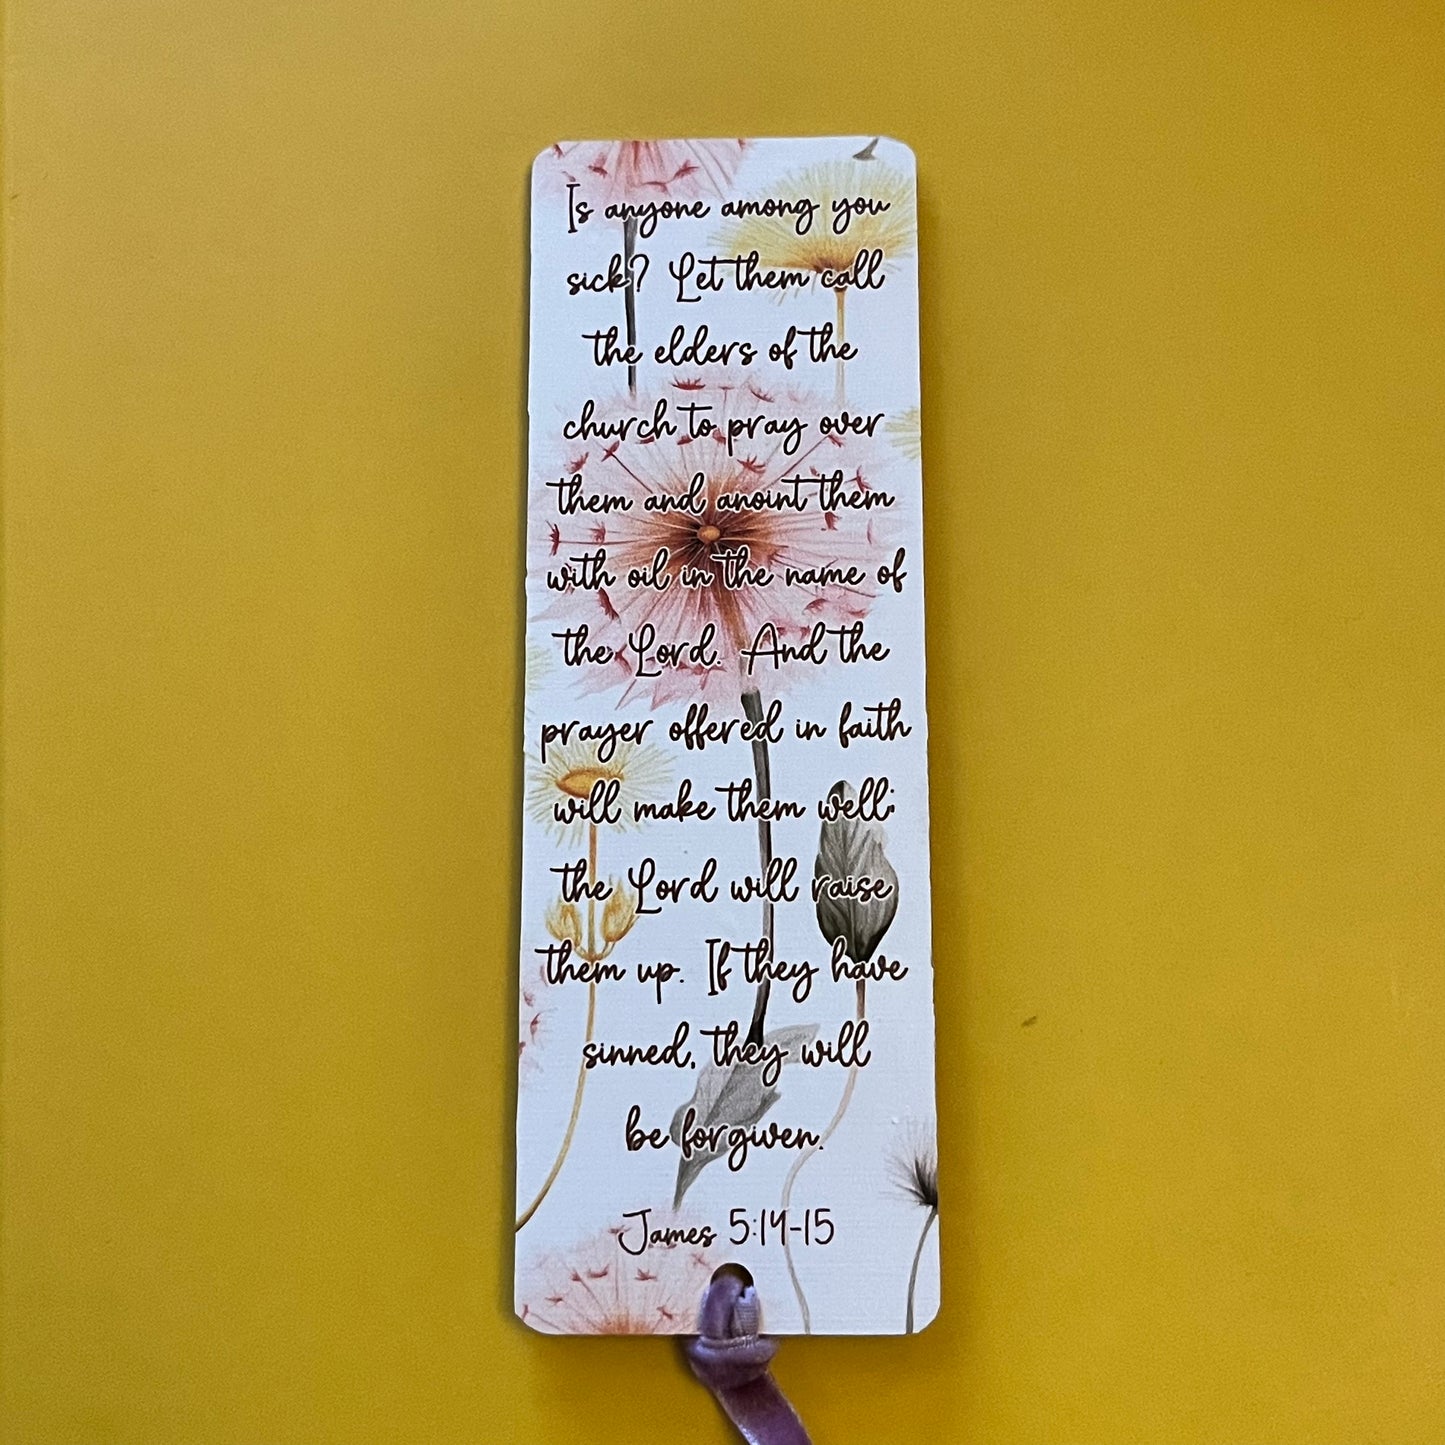 Is anyone among you
sick? Let them call
the elders of the
church to pray over
them and anoint them
with oil in the name of
the Lord. And the
prayer offered in faith
will make them well;
the Lord will raise
them up. If they have
sinned, they will
be forgiven.
James 5:14-15